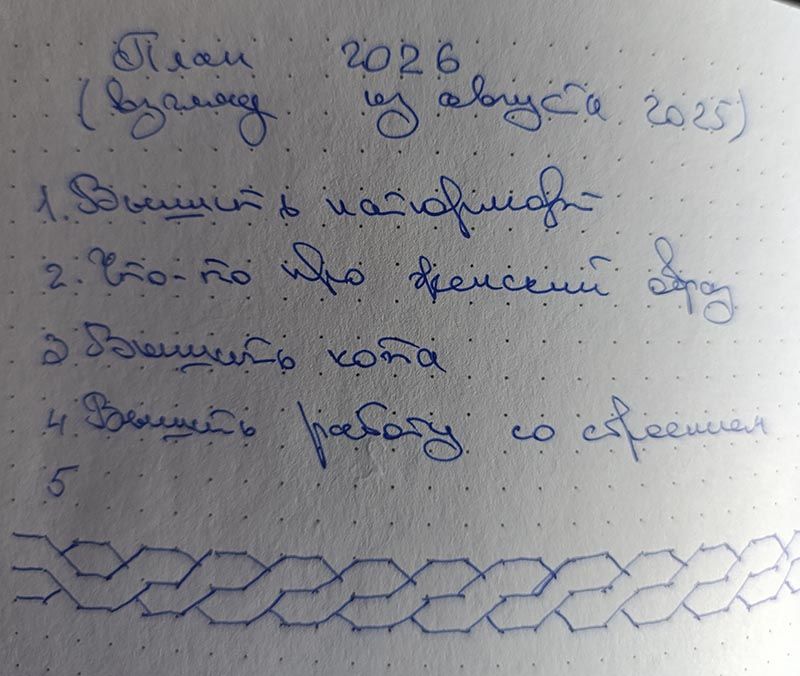 План 2026
(взгляд из августа 2025)
1. Вышить натюрморт
2. Что-то про женский образ
3 Вышить кота
4 Вышить работу со строением
5